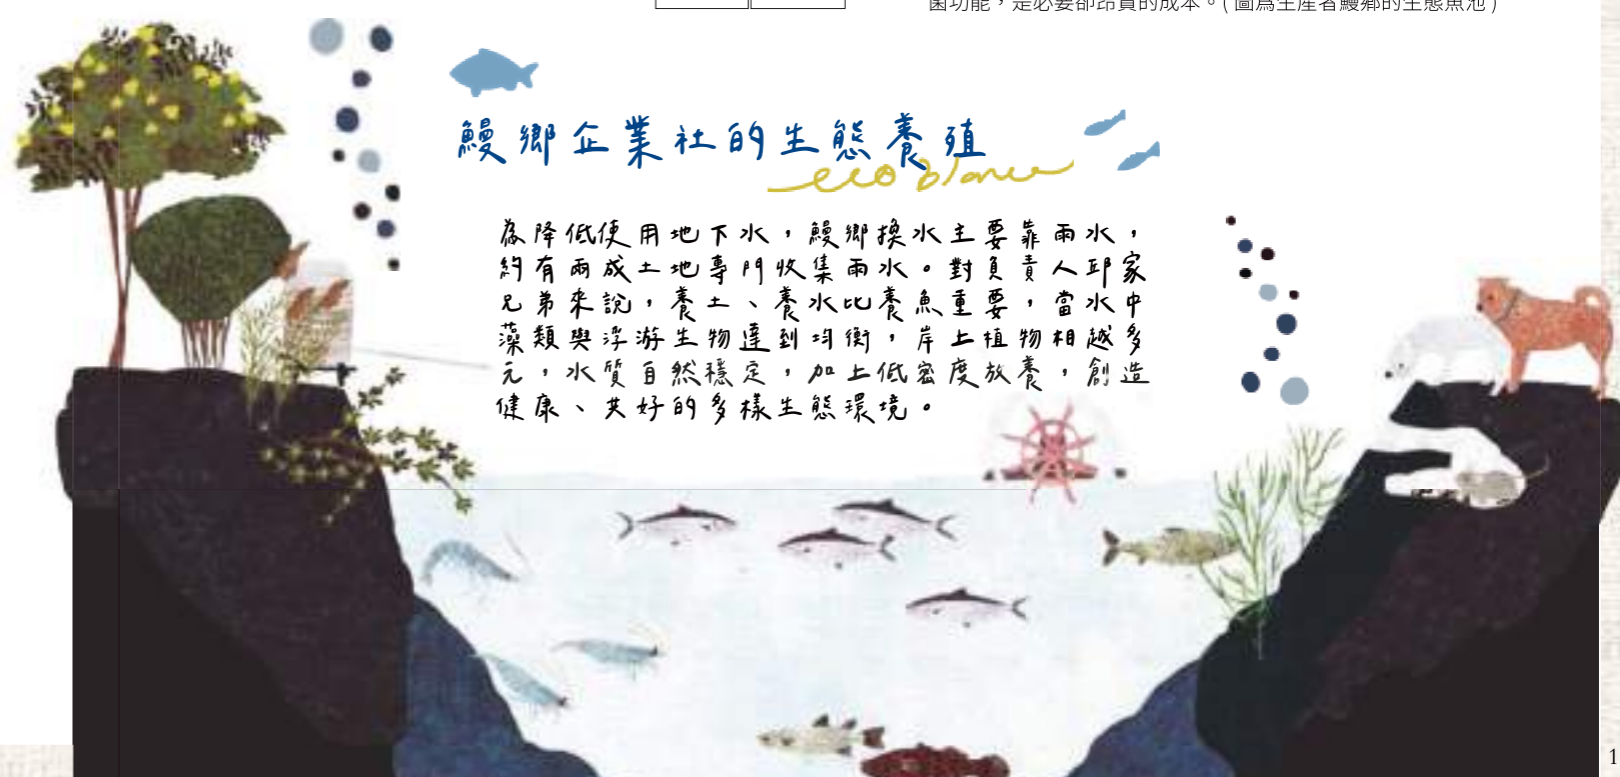 菌功能，是必要卻昂貴的成本。( 圖為生產者鰻鄉的生態魚池 )
鰻鄉企業社的生態養殖
eco blance
為降低使用地下水，鰻鄉換水主要靠雨水，
約有兩成土地專門收集雨水。對負責人邱家
兄弟來說，養土、養水比養魚重要，當水中
藻類與浮游生物達到均衡，岸上植物相越多
元，水質自然穩定，加上低密度放養，創造
健康、共好的多樣生態環境。
1